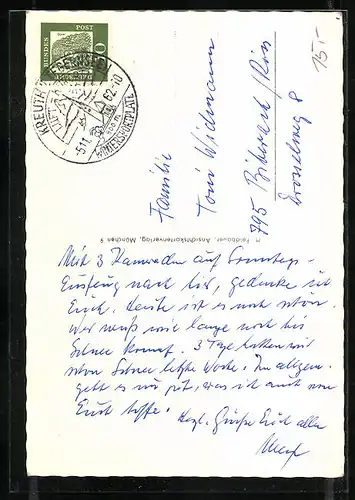 15,-
DEUTSCHE
BUNDES POST
KREUTH
LUFT
WINTERSPORTPLATZ
800 m
-5.11.62-10
Familie
Toni Widmann
795 Biberach/Riss
Drosselweg 8
Feldbauer, Ansichtkartenverlag, München 9
Mit 3 Kameraden auf Sonntags-
Ausflug nach hier, gedenke ich
Euch. Heute ist es noch schön.
Wer weiß wie lange noch bis
Schnee kommt. 3 Tage hatten wir
schon Schnee letzte Woche. Im allgem.
geht es uns gut, was ich auch von
Euch hoffe. Herzl. Grüße Euch allen